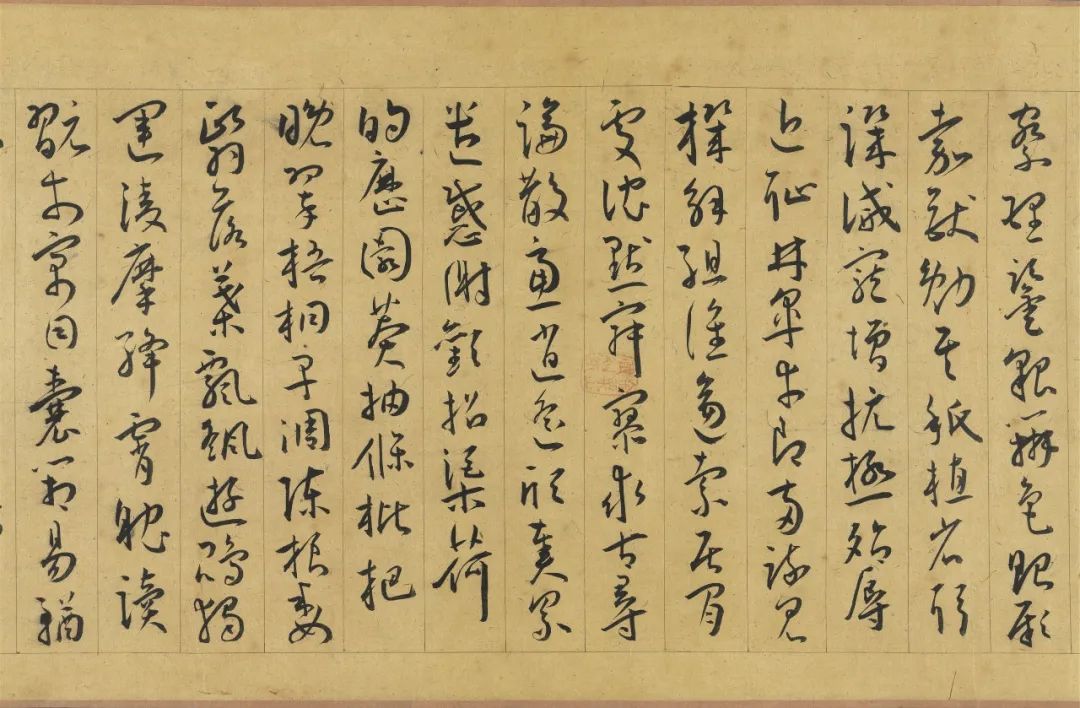 察理鑒貌辨色貽厥
嘉猷勉其祗植省躬
譏誡寵增抗極殆辱
近恥林皋幸即兩疏見
機解組誰逼索居閒
處沈默寂寥求古尋
論散慮逍遙欣奏累
遣慼謝歡招渠荷
的歷園莽抽條枇杷
晚翠梧桐早凋陳根委
翳落葉飄颻遊鵾獨
運凌摩絳霄耽讀
翫市寓目囊箱易輶